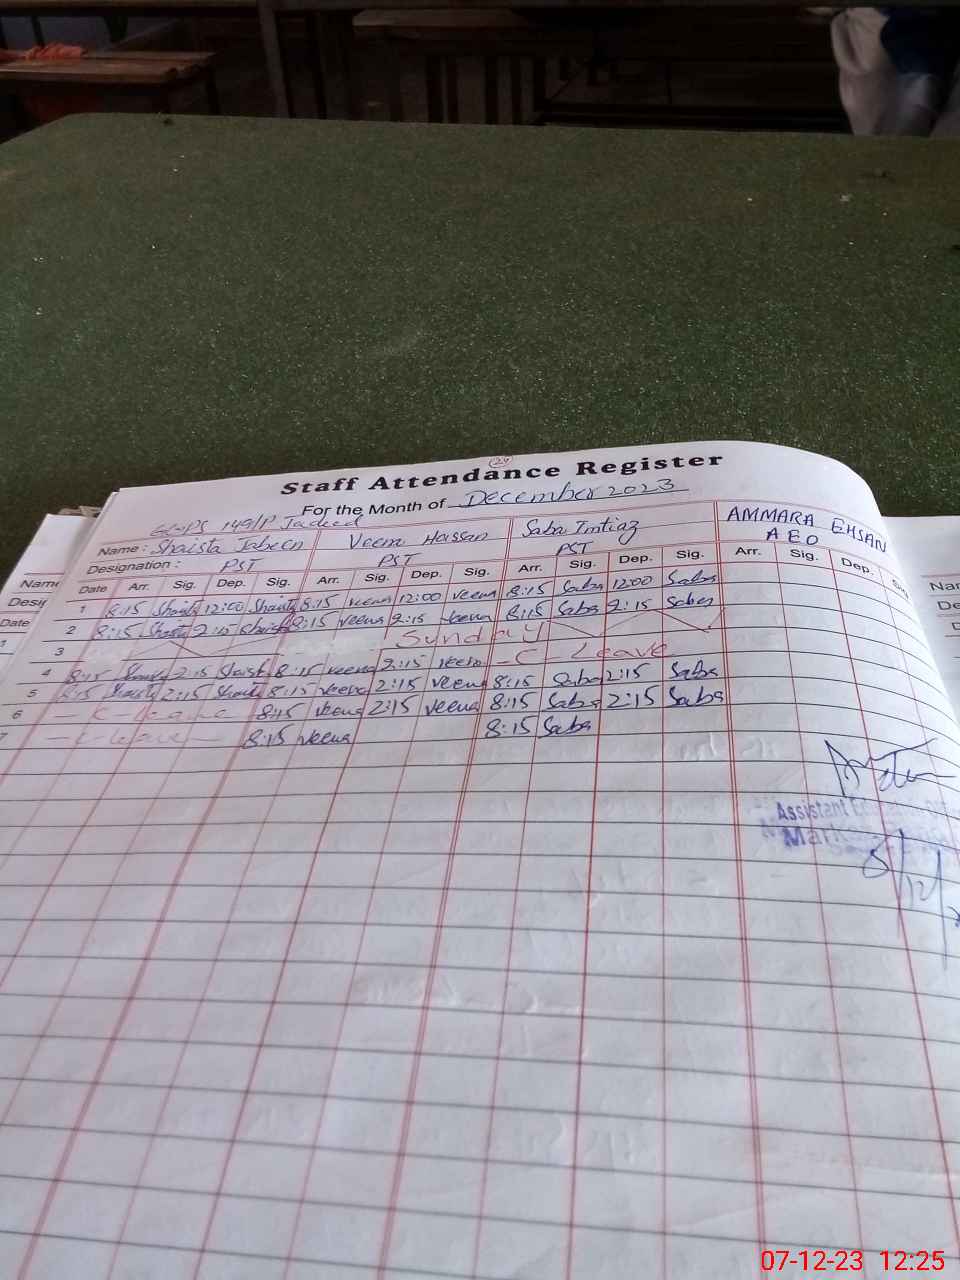 24
Staff Attendance Register
For the Month of December 2023
GGPS 149/P Jadeed
Name: Shaista Jabeen Veena Hassan Saba Imtiaz AMMARA EHSAN
Designation: PST PST PST AEO
Date Arr. Sig. Dep. Sig. Arr. Sig. Dep. Sig. Arr. Sig. Dep. Sig. Arr. Sig. Dep.
1 8:15 Shaista 12:00 Shaista 8:15 veena 12:00 veena 8:15 Saba 12:00 Saba
2 8:15 Shaista 2:15 Shaista 8:15 veena 2:15 veena 8:15 Saba 2:15 Saba
3 Sunday
4 8:15 Shaista 2:15 Shaista 8:15 veena 2:15 veena - C - Leave
5 8:15 Shaista 2:15 Shaista 8:15 veena 2:15 veena 8:15 Saba 2:15 Saba
6 - C - Leave 8:15 veena 2:15 veena 8:15 Saba 2:15 Saba
7 - C - Leave - 8:15 veena 8:15 Saba
Assistant
Marka
5/12/
Name
Date
Nan
De
D
07-12-23 12:25